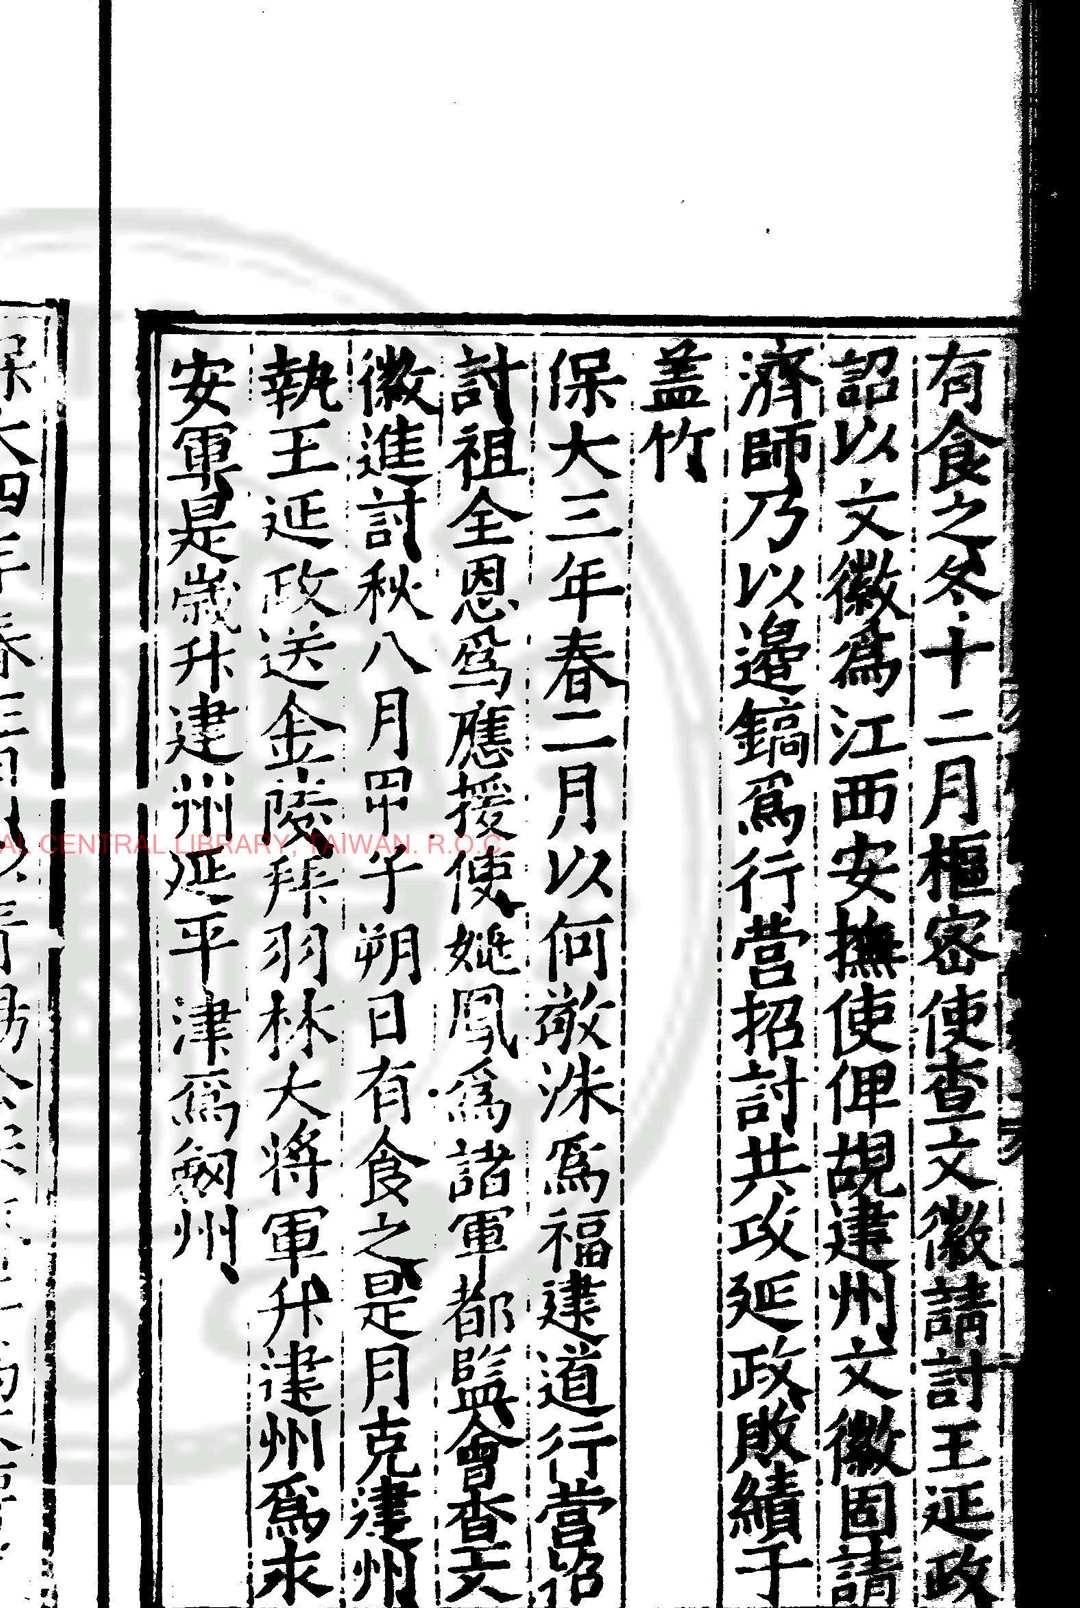 有食之冬十二月樞密使查文徽請討王延政
詔以文徽爲江西安撫使俾覘建州文徽固請
濟師乃以邊鎬爲行營招討共攻延政敗績于
盖竹
保大三年春二月以何敬洙爲福建道行營招
討祖全恩爲應援使姚鳳爲諸軍都監會查文
徽進討秋八月甲子朔日有食之是月克建州
執王延政送金陵拜羽林大將軍升建州爲永
安軍是歲升建州延平津爲劔州
保大四年春三月以
NATIONAL CENTRAL LIBRARY, TAIWAN. R.O.C.